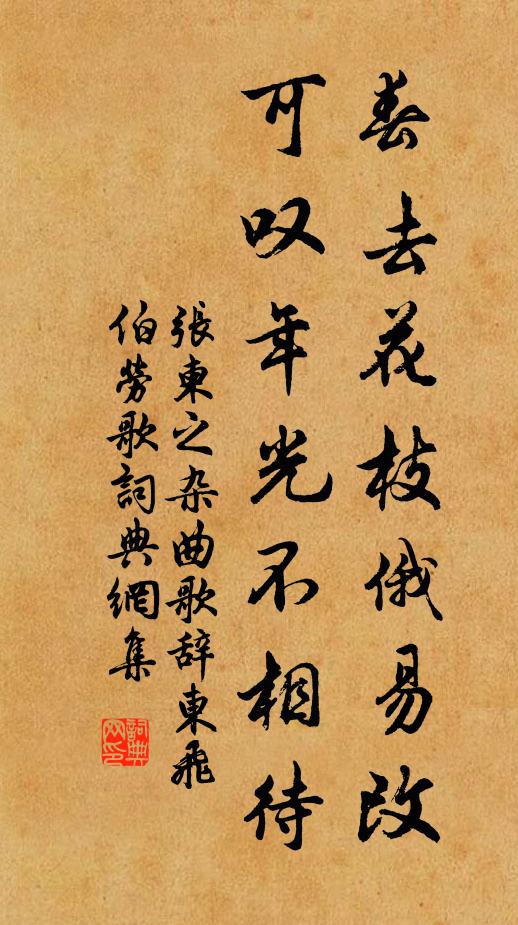 春去花枝俄易改
可叹年光不相待
張東之杂曲歌辞東飛
伯劳歌詞典網集
詞典
网印